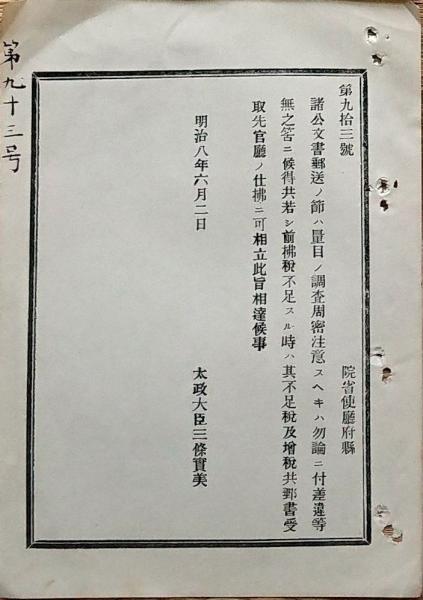 第九十三号
第九拾三號
院省使廳府縣
諸公文書郵送ノ節ハ量目ノ調査周密注意スヘキハ勿論ニ付差違等
無之筈ニ候得共若シ前拂税不足スル時ハ其不足税及增税共郵書受
取先官廳ノ仕拂ニ可相立此旨相達候事
明治八年六月二日
太政大臣三條實美